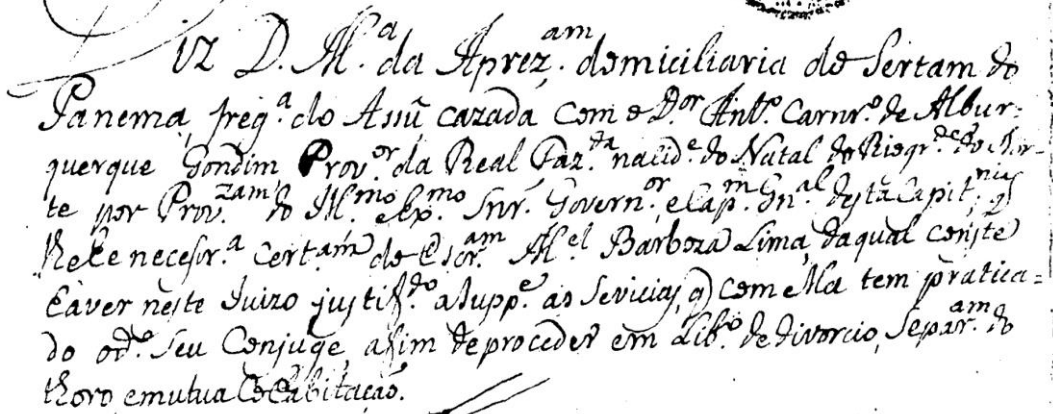 Diz D. M.ª da Aprez.am domiciliaria do Sertam do
Panema, freg.ª do Assû, cazada com o D.or Ant.o Carnr.o de Albur-
querque Gondim Prov.or da Real Faz.da na cid.e do Natal do Rio gr.de do Nor-
te por Prov.zam do Il.mo e Ex.mo Snr. Govern.or e Cap.m Gn.al desta Capit.nia, q̃
lhe he necessr.ª Cert.am do Escr.am M.el Barboza Lima, da qual conste
haver neste Juizo justif.do a Supp.e as Sevicias, q̃ com ella tem pratica-
do o d.o Seu Conjuge, afim de proceder em Lib.o de divorcio, Separ.am do
thoro e mutua Cohabitação.